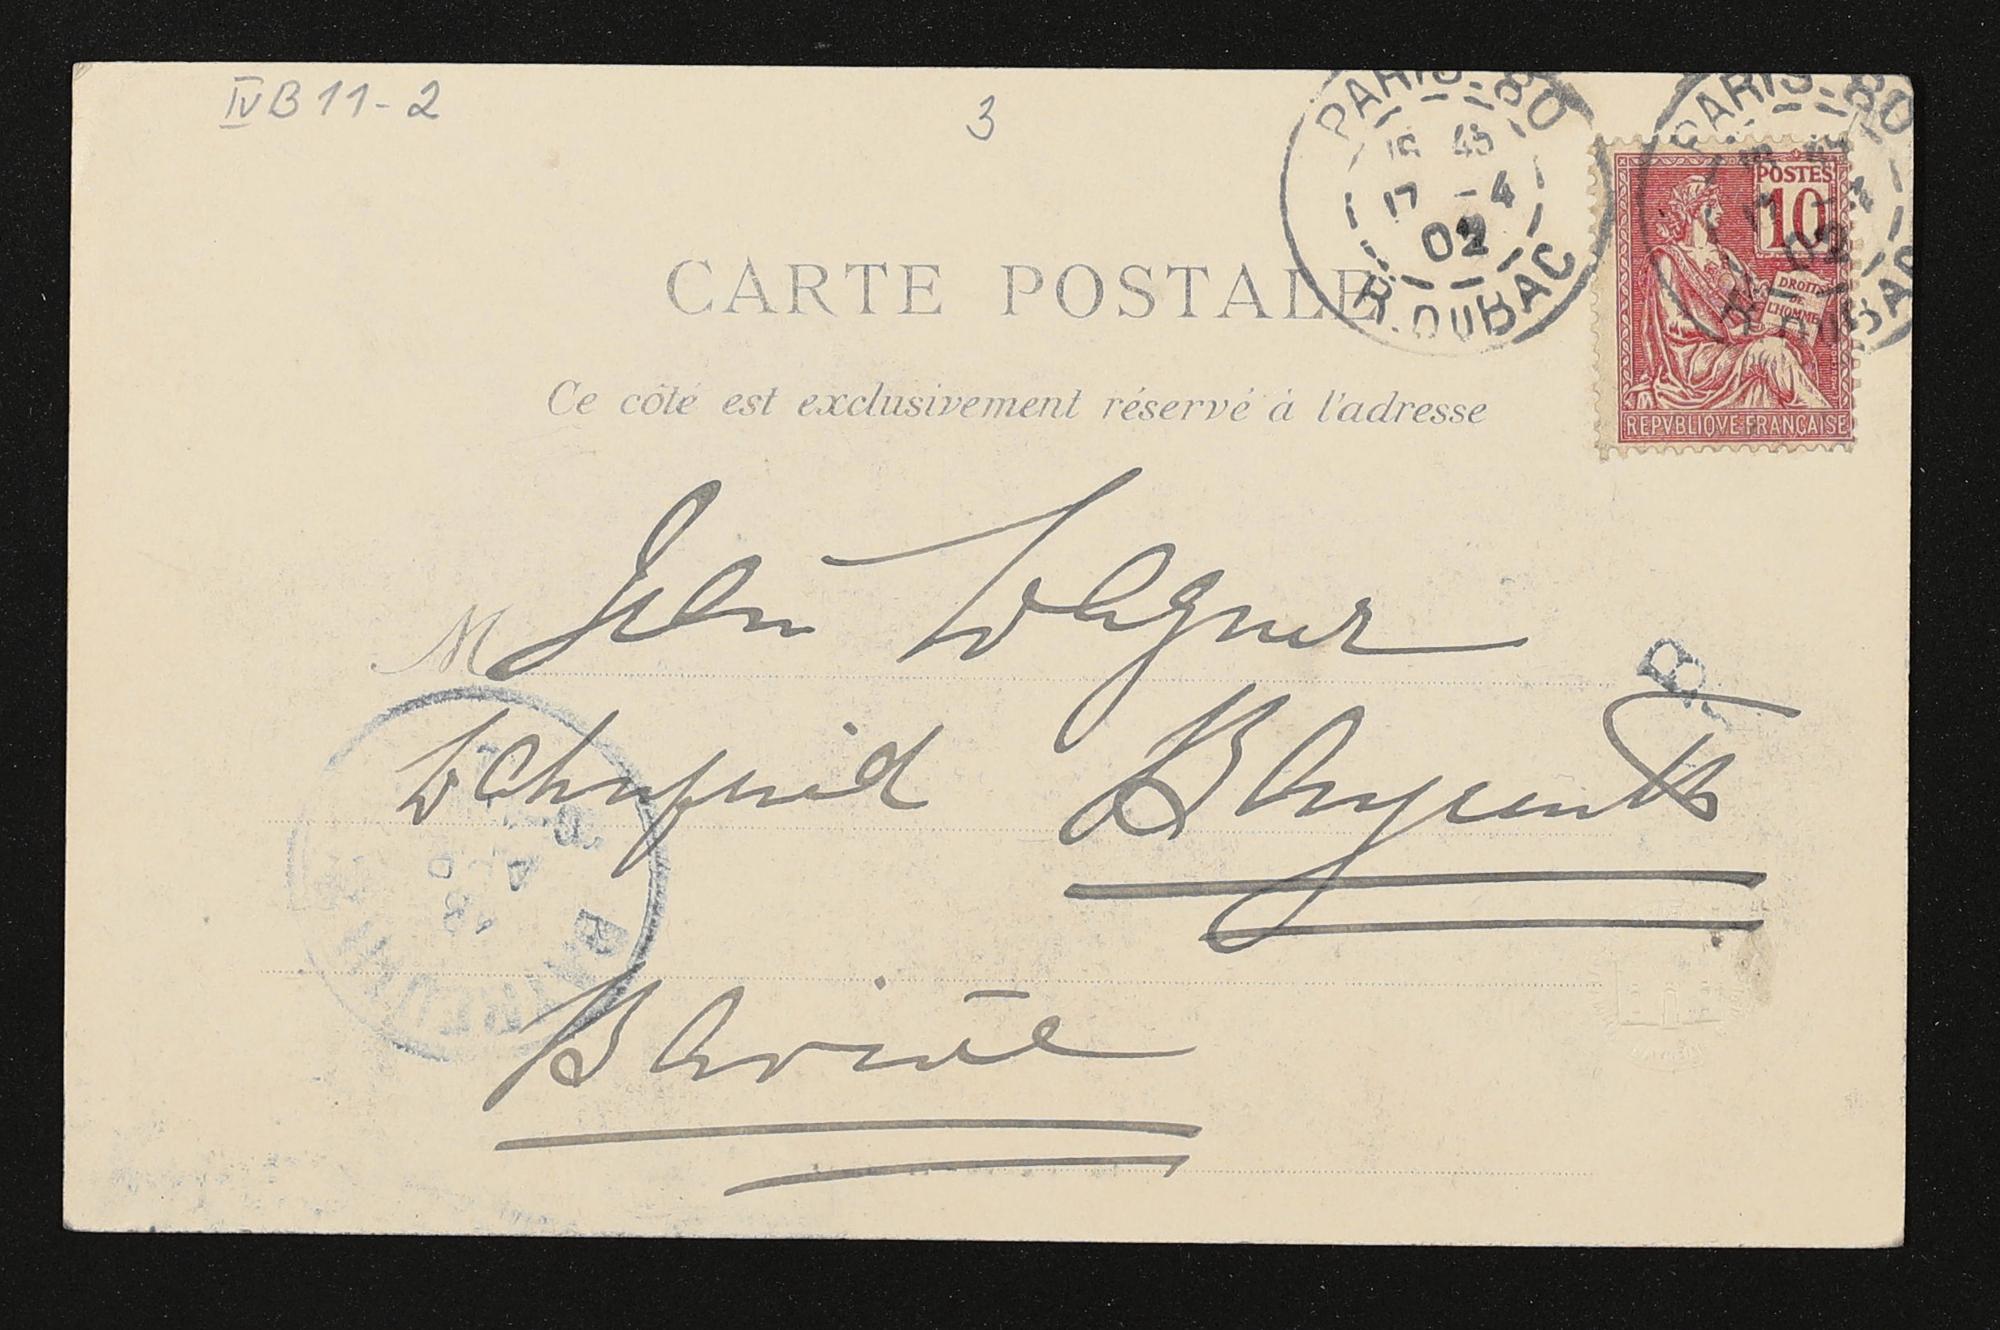 IV B 11-2
3
PARIS-80
45
17 -4
02
R. DU BAC
PARIS-80
02
R. DU BAC
POSTES
10
DROITS
DE
L'HOMME
REPVBLIQVE FRANÇAISE
CARTE POSTALE
Ce côté est exclusivement réservé à l'adresse
M
Wagner
B
Wahnfried Bayreuth
Bavière